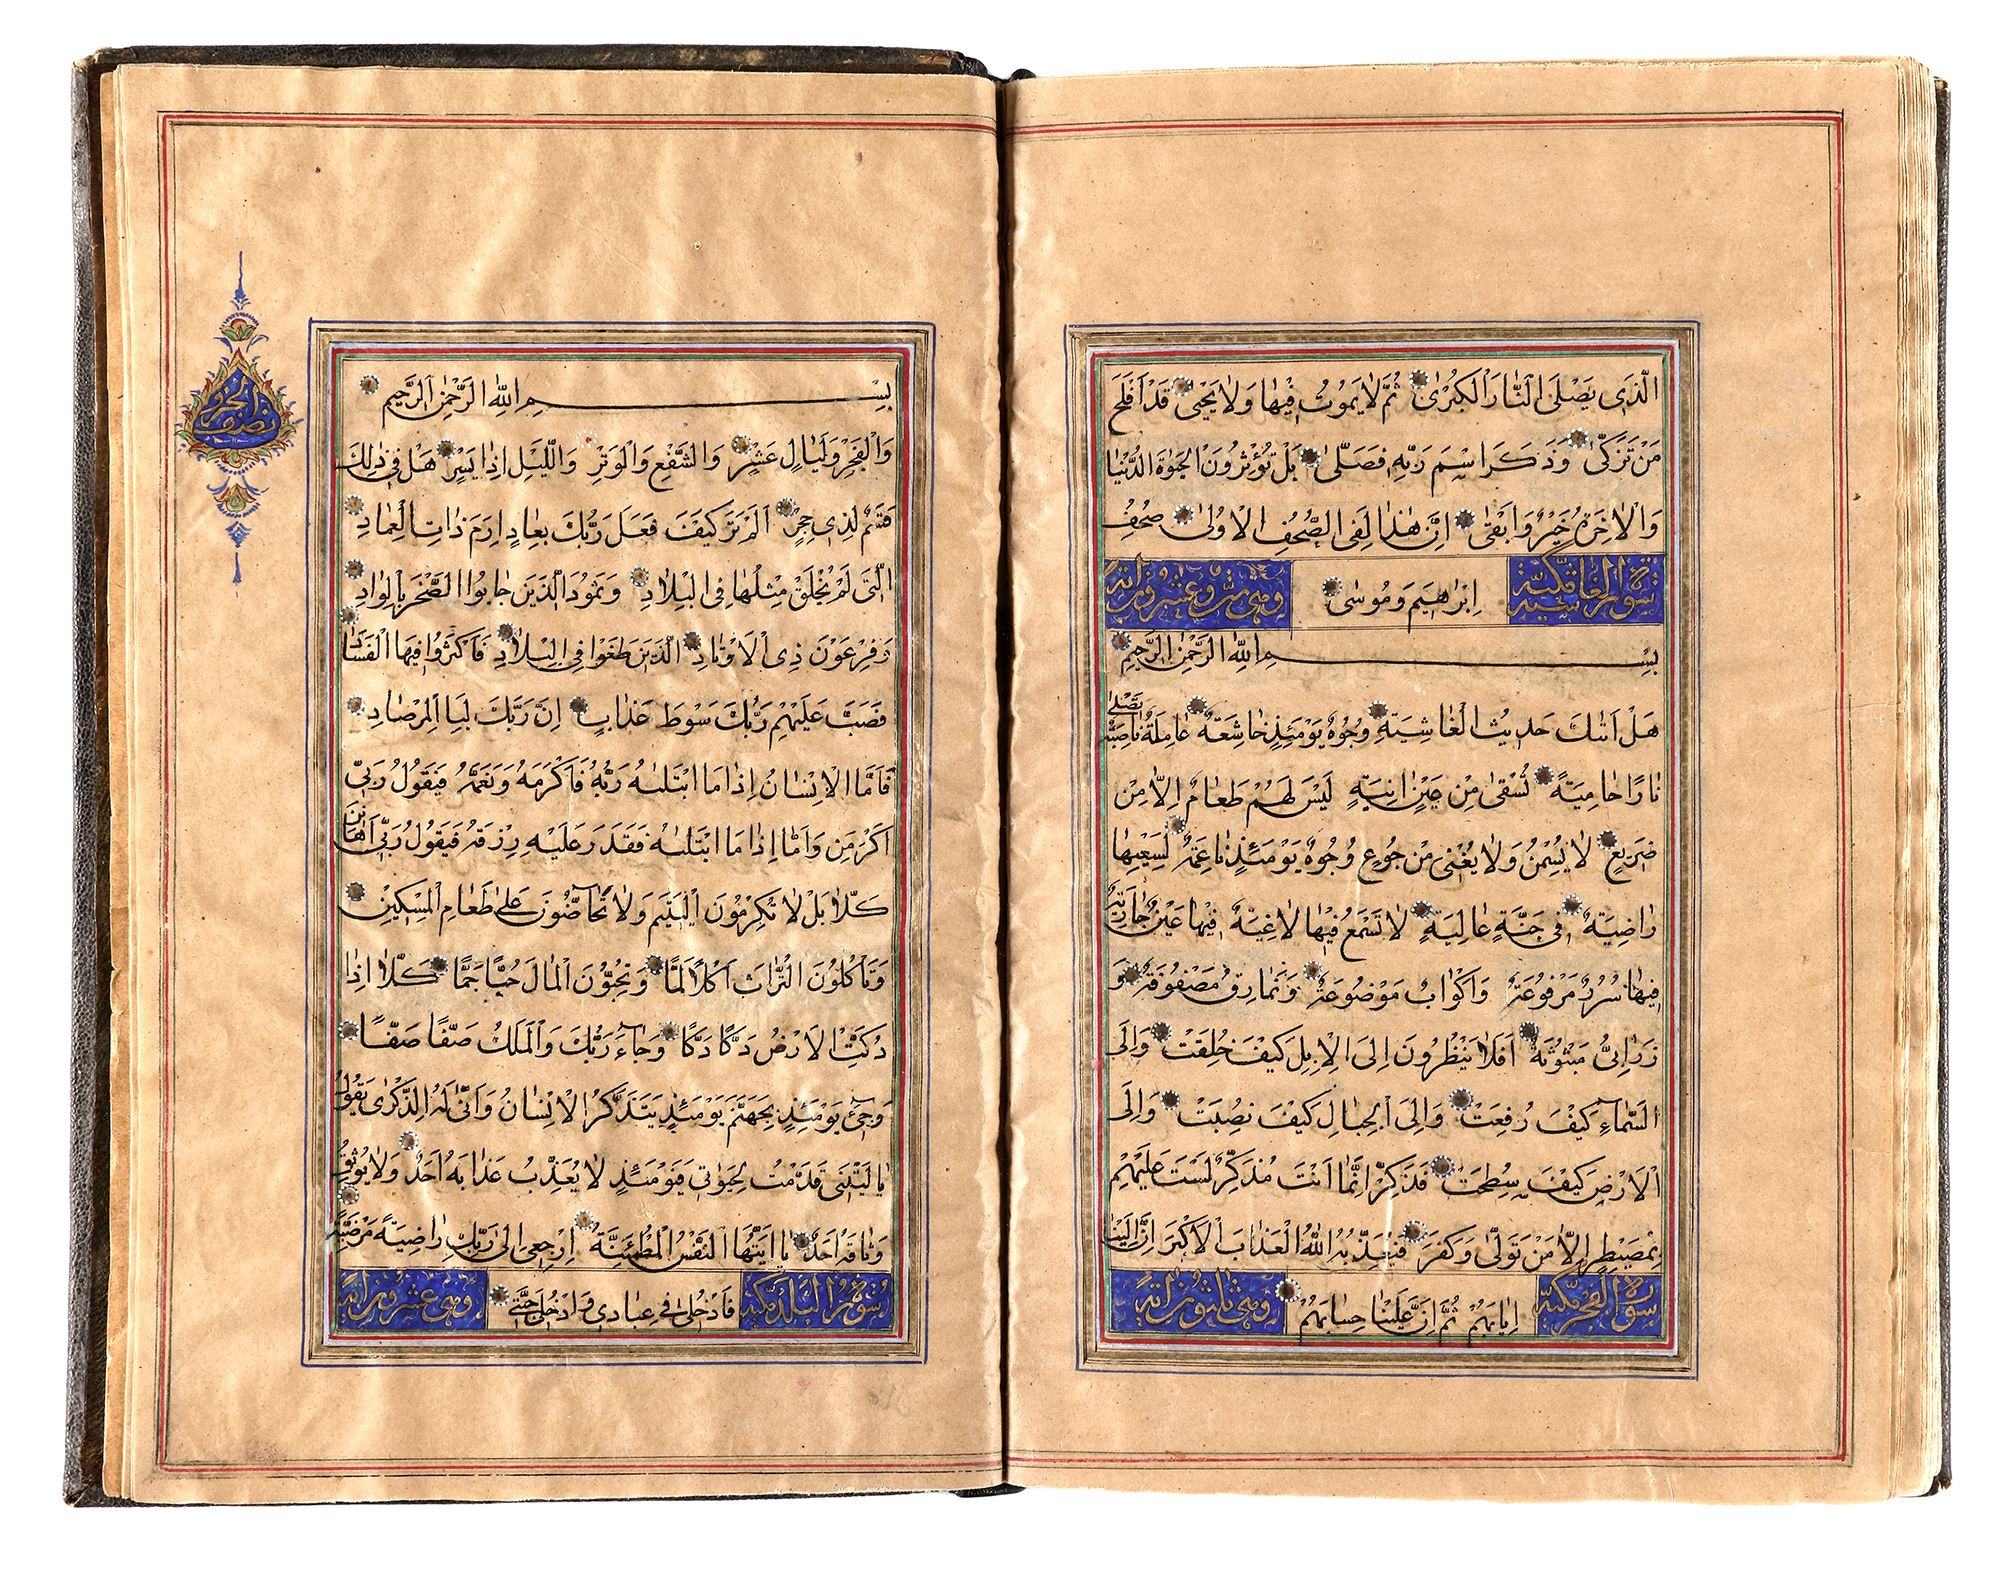 الَّذى يَصْلَى النَّارَ الْكُبْرىٰ ثُمَّ لٰا يَمُوتُ فيهٰا وَلٰا يَحْيىٰ قَدْ اَفْلَحَ
مَنْ تَزَكّىٰ وَذَكَرَ اسْمَ رَبِّهِ فَصَلّىٰ بَلْ تُؤْثِرُونَ الْحَيٰوةَ الدُّنْيٰا
وَالْاٰخِرَةُ خَيْرٌ وَاَبْقىٰ اِنَّ هٰذٰا لَفِى الصُّحُفِ الْاُولىٰ صُحُفِ
سورة الغاشية مكية اِبْرٰاهيمَ وَمُوسىٰ وهى ست وعشرون اية
بِسْمِ اللّٰهِ الرَّحْمٰنِ الرَّحيمِ
هَلْ اَتٰىكَ حَديثُ الْغٰاشِيَةِ وُجُوهٌ يَوْمَئِذٍ خٰاشِعَةٌ عٰامِلَةٌ نٰاصِبَةٌ تَصْلىٰ
نٰارًا حٰامِيَةً تُسْقىٰ مِنْ عَيْنٍ اٰنِيَةٍ لَيْسَ لَهُمْ طَعٰامٌ اِلّٰا مِنْ
ضَريعٍ لٰا يُسْمِنُ وَلٰا يُغْنى مِنْ جُوعٍ وُجُوهٌ يَوْمَئِذٍ نٰاعِمَةٌ لِسَعْيِهٰا
رٰاضِيَةٌ فى جَنَّةٍ عٰالِيَةٍ لٰا تَسْمَعُ فيهٰا لٰاغِيَةً فيهٰا عَيْنٌ جٰارِيَةٌ
فيهٰا سُرُرٌ مَرْفُوعَةٌ وَاَكْوٰابٌ مَوْضُوعَةٌ وَنَمٰارِقُ مَصْفُوفَةٌ وَ
زَرٰابِىُّ مَبْثُوثَةٌ اَفَلٰا يَنْظُرُونَ اِلَى الْاِبِلِ كَيْفَ خُلِقَتْ وَاِلَى
السَّمٰاءِ كَيْفَ رُفِعَتْ وَاِلَى الْجِبٰالِ كَيْفَ نُصِبَتْ وَاِلَى
الْاَرْضِ كَيْفَ سُطِحَتْ فَذَكِّرْ اِنَّمٰا اَنْتَ مُذَكِّرٌ لَسْتَ عَلَيْهِمْ
بِمُصَيْطِرٍ اِلّٰا مَنْ تَوَلّىٰ وَكَفَرَ فَيُعَذِّبُهُ اللّٰهُ الْعَذٰابَ الْاَكْبَرَ اِنَّ اِلَيْنٰا
سورة الفجر مكية اِيٰابَهُمْ ثُمَّ اِنَّ عَلَيْنٰا حِسٰابَهُمْ وهى ثلثون اية
بِسْمِ اللّٰهِ الرَّحْمٰنِ الرَّحيمِ
وَالْفَجْرِ وَلَيٰالٍ عَشْرٍ وَالشَّفْعِ وَالْوَتْرِ وَاللَّيْلِ اِذٰا يَسْرِ هَلْ فى ذٰلِكَ
قَسَمٌ لِذى حِجْرٍ اَلَمْ تَرَ كَيْفَ فَعَلَ رَبُّكَ بِعٰادٍ اِرَمَ ذٰاتِ الْعِمٰادِ
الَّتى لَمْ يُخْلَقْ مِثْلُهٰا فِى الْبِلٰادِ وَثَمُودَ الَّذينَ جٰابُوا الصَّخْرَ بِالْوٰادِ
وَفِرْعَوْنَ ذِى الْاَوْتٰادِ الَّذينَ طَغَوْا فِى الْبِلٰادِ فَاَكْثَرُوا فيهَا الْفَسٰادَ
فَصَبَّ عَلَيْهِمْ رَبُّكَ سَوْطَ عَذٰابٍ اِنَّ رَبَّكَ لَبِالْمِرْصٰادِ
فَاَمَّا الْاِنْسٰانُ اِذٰا مَا ابْتَلٰىهُ رَبُّهُ فَاَكْرَمَهُ وَنَعَّمَهُ فَيَقُولُ رَبّى
اَكْرَمَنِ وَاَمّٰا اِذٰا مَا ابْتَلٰىهُ فَقَدَرَ عَلَيْهِ رِزْقَهُ فَيَقُولُ رَبّى اَهٰانَنِ
كَلّٰا بَلْ لٰا تُكْرِمُونَ الْيَتيمَ وَلٰا تَحٰاضُّونَ عَلىٰ طَعٰامِ الْمِسْكينِ
وَتَأْكُلُونَ التُّرٰاثَ اَكْلًا لَمًّا وَتُحِبُّونَ الْمٰالَ حُبًّا جَمًّا كَلّٰا اِذٰا
دُكَّتِ الْاَرْضُ دَكًّا دَكًّا وَجٰاءَ رَبُّكَ وَالْمَلَكُ صَفًّا صَفًّا
وَجىءَ يَوْمَئِذٍ بِجَهَنَّمَ يَوْمَئِذٍ يَتَذَكَّرُ الْاِنْسٰانُ وَاَنّىٰ لَهُ الذِّكْرىٰ يَقُولُ
يٰا لَيْتَنى قَدَّمْتُ لِحَيٰوتى فَيَوْمَئِذٍ لٰا يُعَذِّبُ عَذٰابَهُ اَحَدٌ وَلٰا يُوثِقُ
وَثٰاقَهُ اَحَدٌ يٰا اَيَّتُهَا النَّفْسُ الْمُطْمَئِنَّةُ ارْجِعى اِلىٰ رَبِّكِ رٰاضِيَةً مَرْضِيَّةً
سورة البلد مكية فَادْخُلى فى عِبٰادى وَادْخُلى جَنَّتى وهى عشرون اية
نصف الجزو